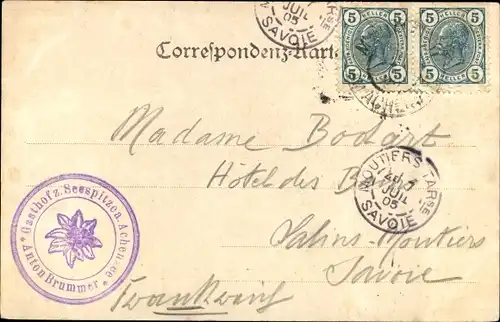 Correspondenz-Karte
5 HELLER 5 5 HELLER 5
JUIL 05 SAVOIE
Madame Bodart
Hôtel des B
MOUTIERS TARSE
JUIL 05
SAVOIE
Salins-Moutiers
Savoie
Frankreich
Gasthof z. Seespitz a. Achensee
Anton Brummer